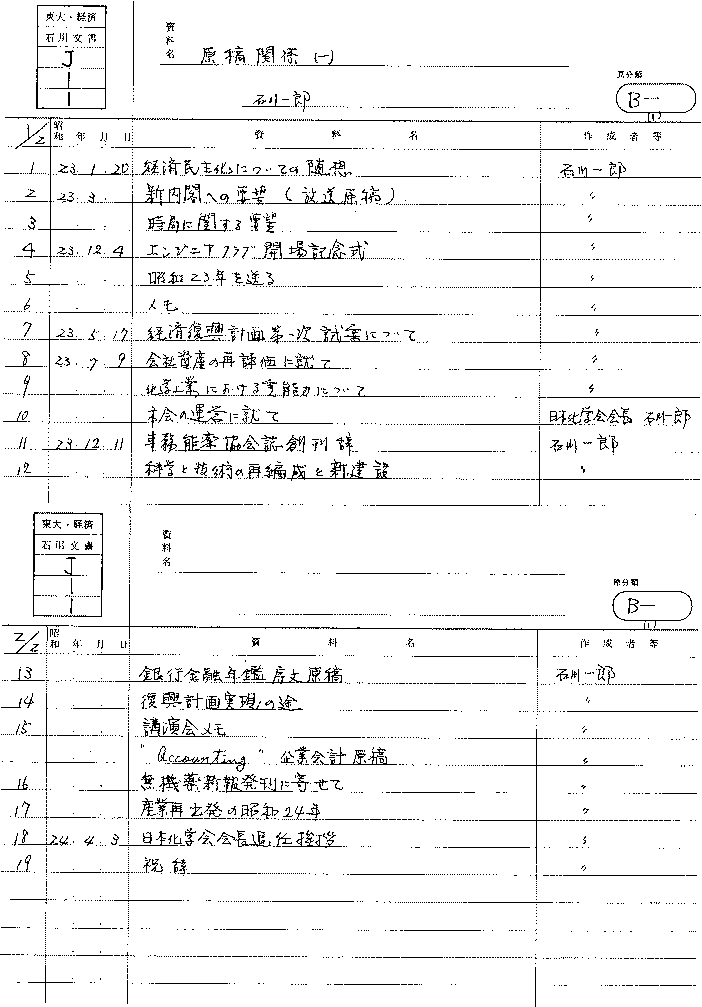 東大・経済
石川文書
J
1
1
資料名 原稿関係 (一)
石川一郎
原分類
B-
(1)
1/2 昭和 年 月 日 資料名 作成者等
1 23. 1. 20 経済民主化についての随想 石川一郎
2 23. 3. 新内閣への要望(放送原稿) 〃
3 時局に関する要望 〃
4 23. 12. 4 エンジニアクラブ開場記念式 〃
5 昭和23年を送る 〃
6 メモ 〃
7 23. 5. 17 経済復興計画第一次試案について 〃
8 23. 7. 9 会社資産の再評価に就て 〃
9 化学工業における実能力について 〃
10 本会の運営に就て 日本化学会会長 石川一郎
11 23. 12. 11 事務能率協会誌創刊辞 石川一郎
12 科学と技術の再編成と新建設 〃
東大・経済
石川文書
J
1
1
資料名
原分類
B-
(1)
2/2 昭和 年 月 日 資料名 作成者等
13 銀行金融年鑑序文原稿 石川一郎
14 復興計画実現の途 〃
15 講演会メモ 〃
"Accounting" 企業会計原稿 〃
16 無機薬新報発刊に寄せて 〃
17 産業再出発の昭和24年 〃
18 24. 4. 3 日本化学会会長退任挨拶 〃
19 祝辞 〃